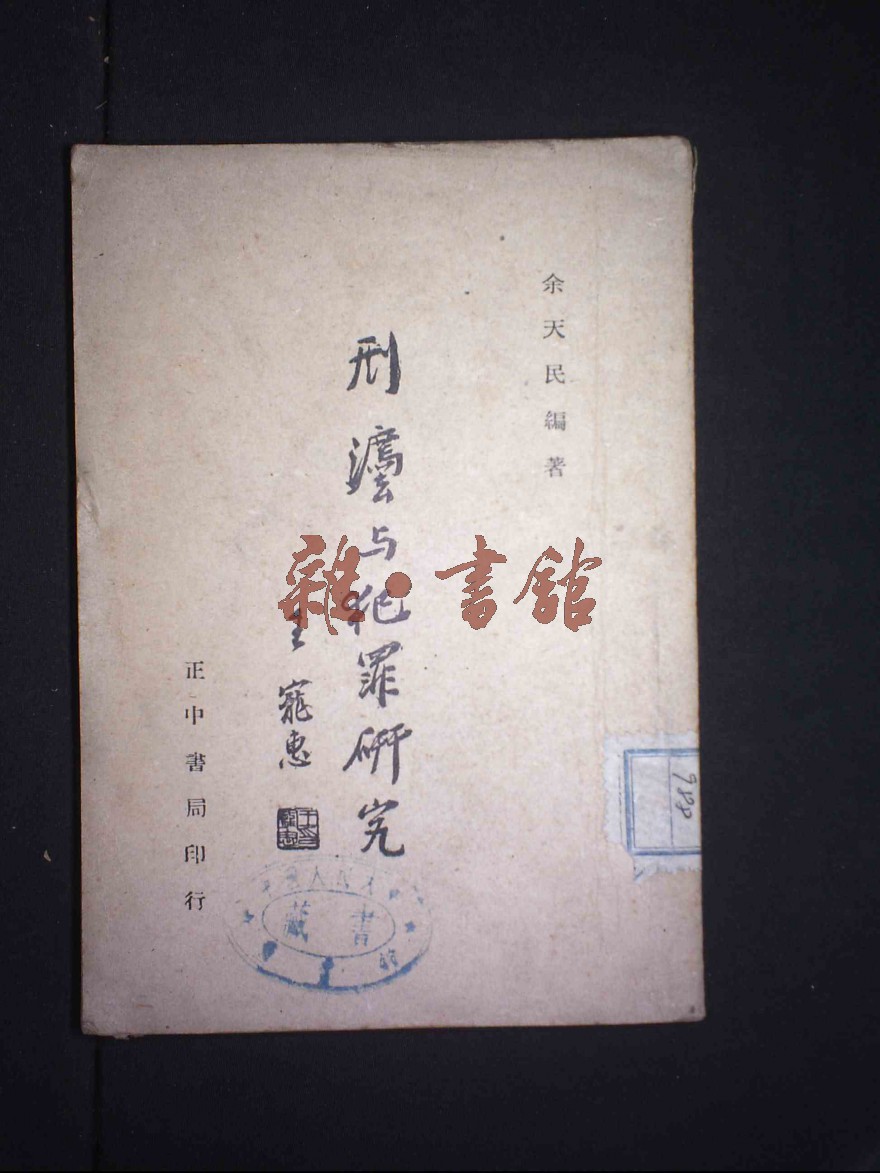 余天民編著
刑灋与犯罪研究
王寵惠
正中書局印行
雜·書館
書藏
988